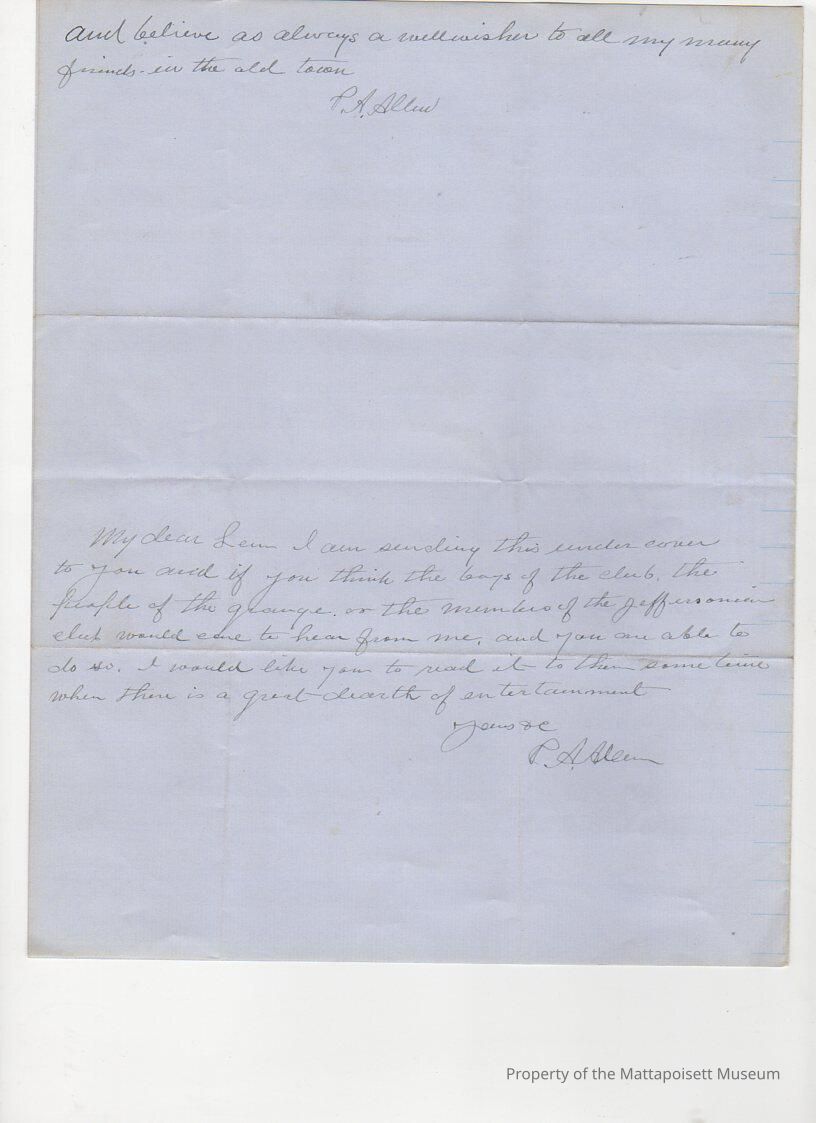 and believe as always a wellwisher to all my many
friends in the old town
P. A. Allen
My dear Lem I am sending this under cover
to you and if you think the boys of the club, the
people of the grange, or the members of the Jeffersonian
club would care to hear from me, and you are able to
do so. I would like you to read it to them some time
when there is a great dearth of entertainment
Yours &c
P. A. Allen
Property of the Mattapoisett Museum